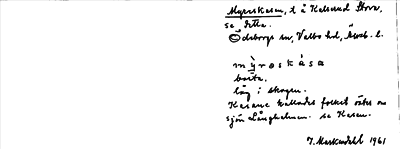 Myrnskasen, t å Kalserud Stora,
se detta.
Ödeborgs sn, Valbo hd, Älvsb. l.
mỳrnskása
borta.
låg i skogen.
Kasane kallades folket väster om
sjön Långhalmen. se Kasen.
J. Markendahl 1961